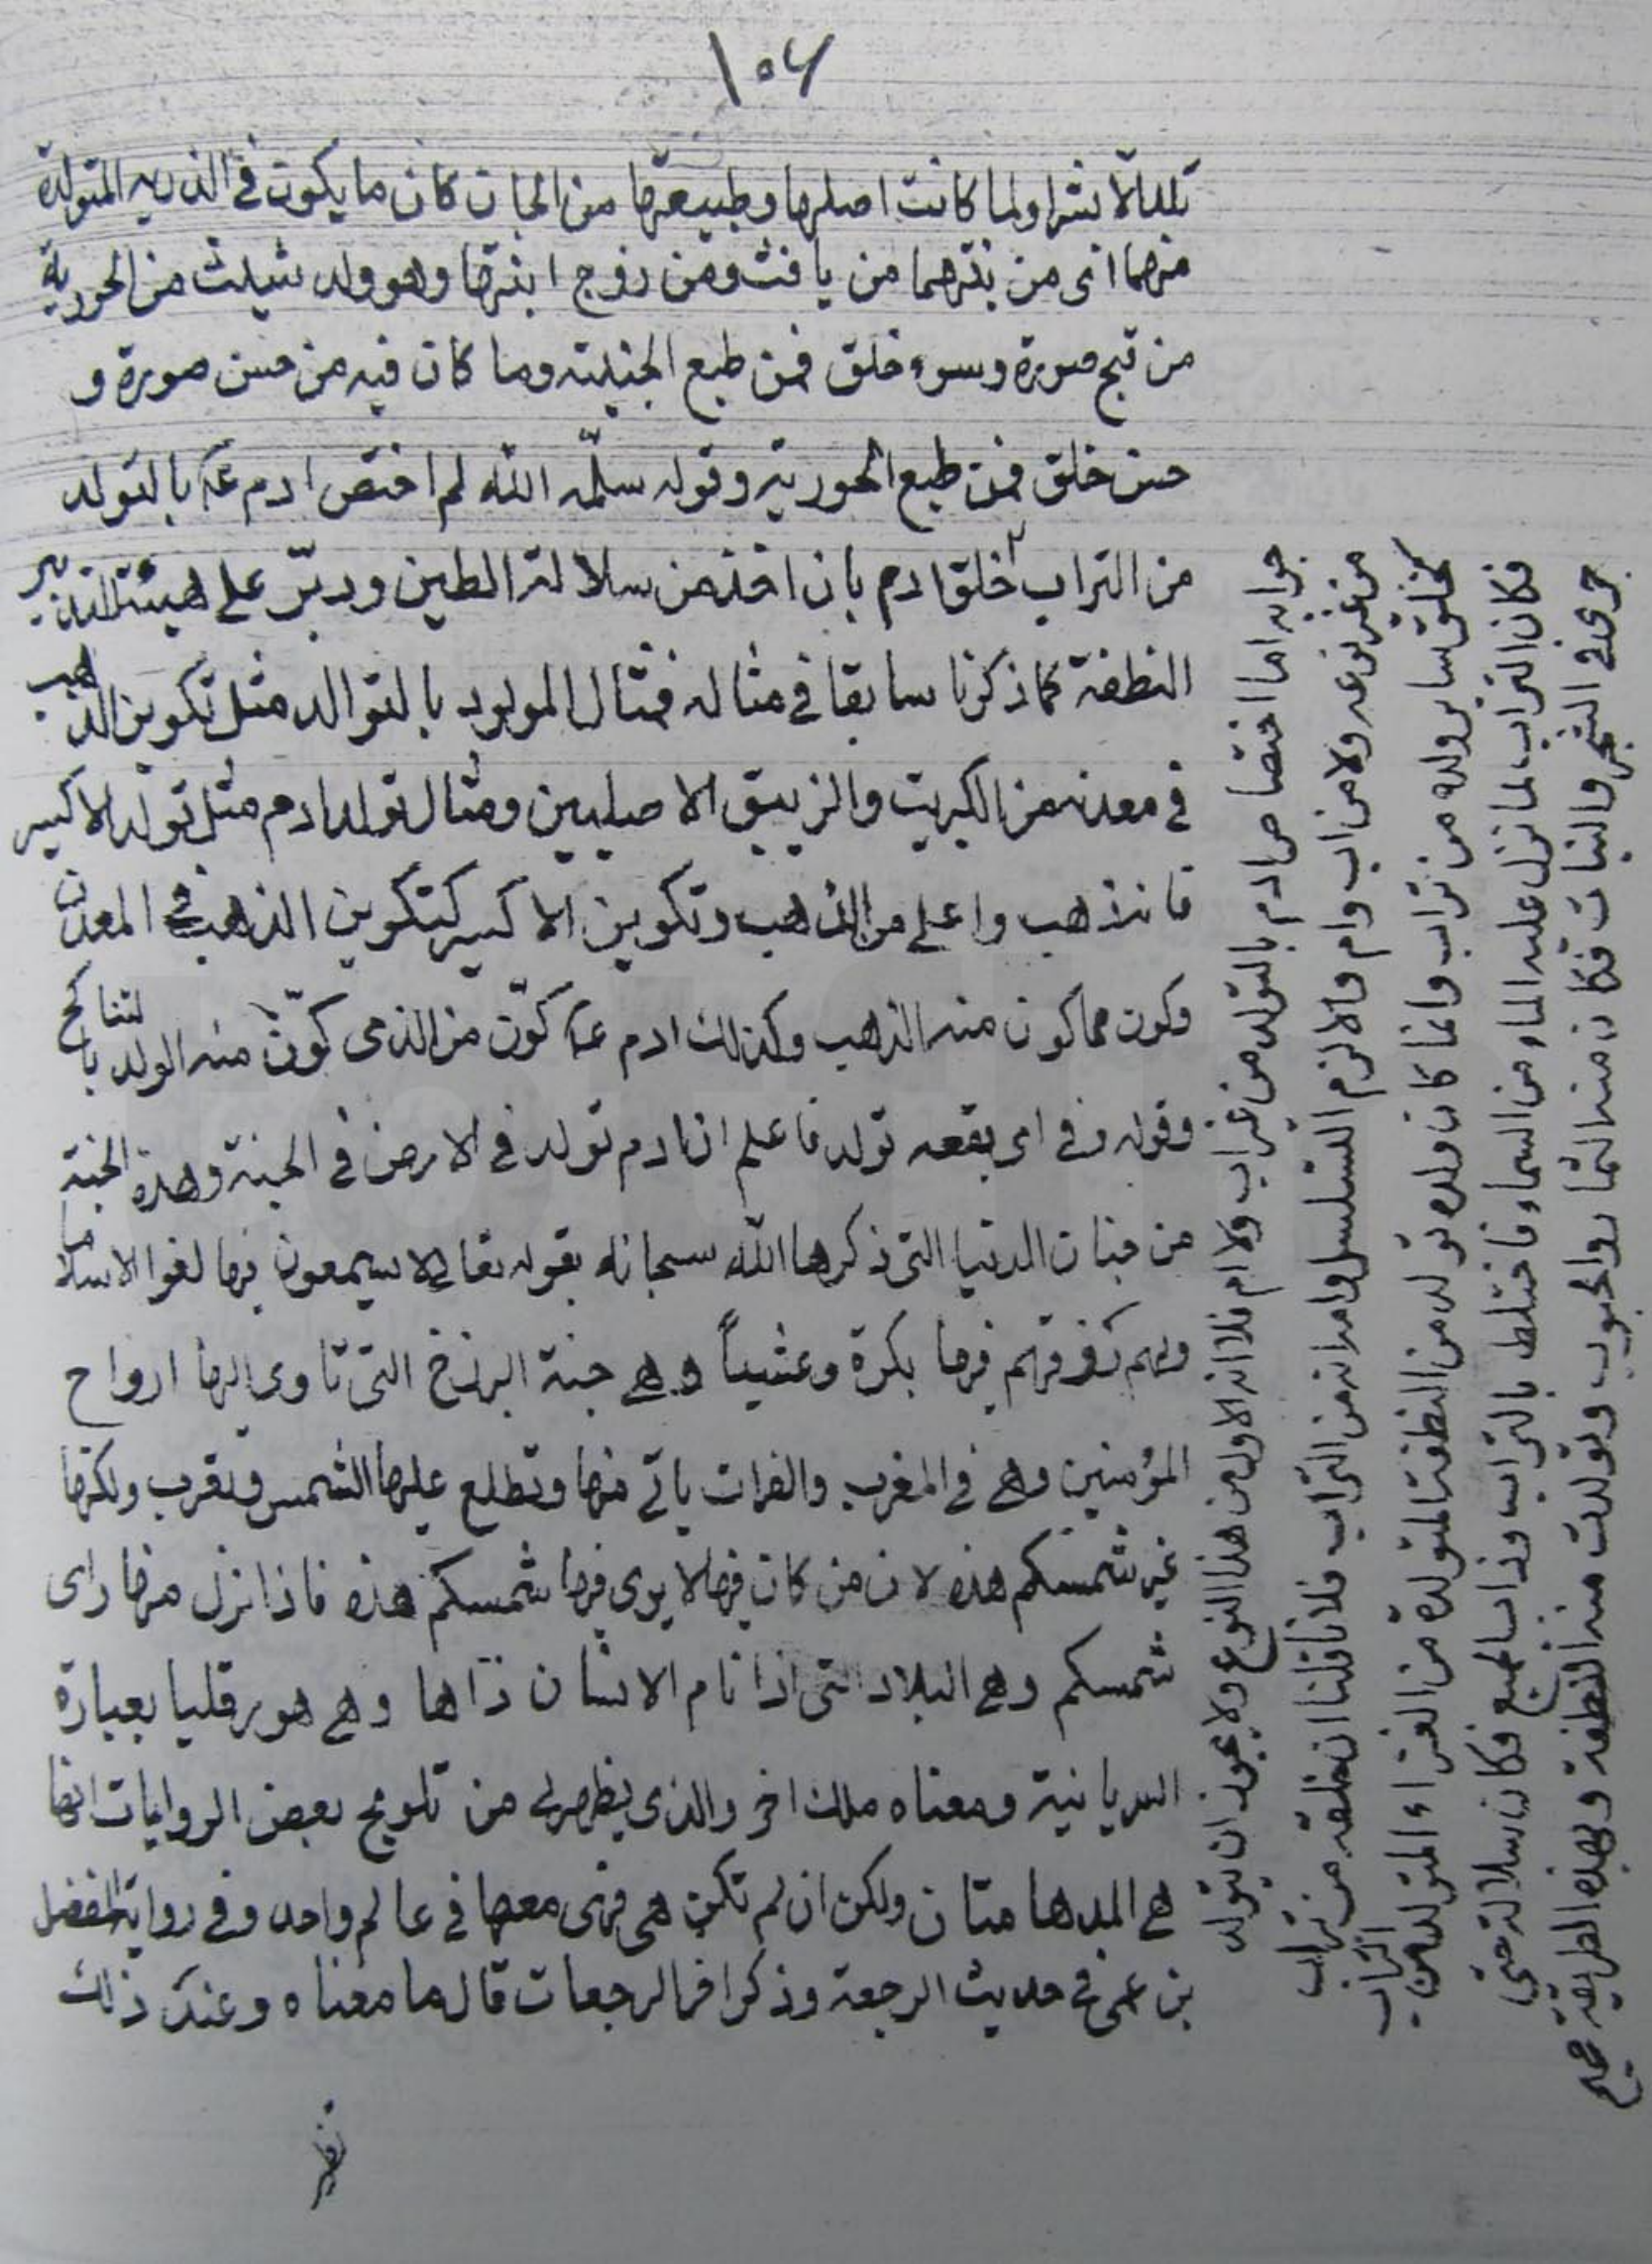 ١٥٦
تلد الا بشرا ولما كانت اصلها وطبيعتها من الجان كان ما يكون في الذرية المتولدة
منهما اى من بنتهما من يافث ومن زوج ابنتها وهو ولد شيث من الحورية
من قبح صورة وسوء خلق فمن طبع الجنية وما كان فيه من حسن صورة و
حسن خلق فمن طبع الحورية وقوله سلّمه الله لم اختص ادم عه بالتولد
من التراب خلق ادم بان اخذ من سلالة الطين ودبّر على هيئة التدبير
النطفة كما ذكرنا سابقا في مثاله فمثال المولود بالتوالد مثل تكوين الذهب
في معدنه من الكبريت والزيبق الاصليين ومثال تولد ادم مثل تولد الاكسير
فانه ذهب واعلى من الذهب وتكوين الاكسير كتكوين الذهب في المعدن
وكون مما كون منه الذهب وكذلك ادم عه كوّن من الذى كوّن منه الولد بالتناكح
وقوله وفى اى بقعه تولد فاعلم ان ادم تولد في الارض في الجنة وهذه الجنة
من جنان الدنيا التى ذكرها الله سبحانه بقوله تعالى لا يسمعون فيها لغوا الا سلاما
ولهم رزقهم فيها بكرة وعشياً وهى جنة البرزخ التى تاوى اليها ارواح
المؤمنين وهى في المغرب والفرات ياتى منها وتطلع عليها الشمس وتغرب ولكنها
غير شمسكم هذه لان من كان فيها لا يرى فيها شمسكم هذه فاذا نزل منها راى
شمسكم وهى البلاد التى اذا نام الانسان رآها وهى هورقليا بعبارة
السريانية ومعناه ملك اخر والذى يظهر لى من تلويح بعض الروايات انها
هى المدهامتان ولكن ان لم تكن هى فهى معها في عالم واحد وفى رواية المفضل
بن عمر في حديث الرجعة وذكر اخر الرجعات قال ما معناه وعند ذلك
تظهر
جوابه اما اختصاص ادم بالتولد من غير اب ولا ام فلانه الاول من هذا النوع ولا يجوز ان يتولد
من غير نوعه ولا من اب وام والا لزم التسلسل واما انه من التراب فلانا قلنا ان خلقه من تراب
كخلق ساير ولده من تراب وانما كان ولده تولد من النطفة المتولدة من الغذاء المتولد من التراب
فكان التراب لما نزل عليه الماء من السماء فاختلط بالتراب وذاب الجميع فكان سلالة حتى
جرى في الشجر والنبات فكان منه الثمار والحبوب وتولدت منه النطفة وبهذه الطريقة صح